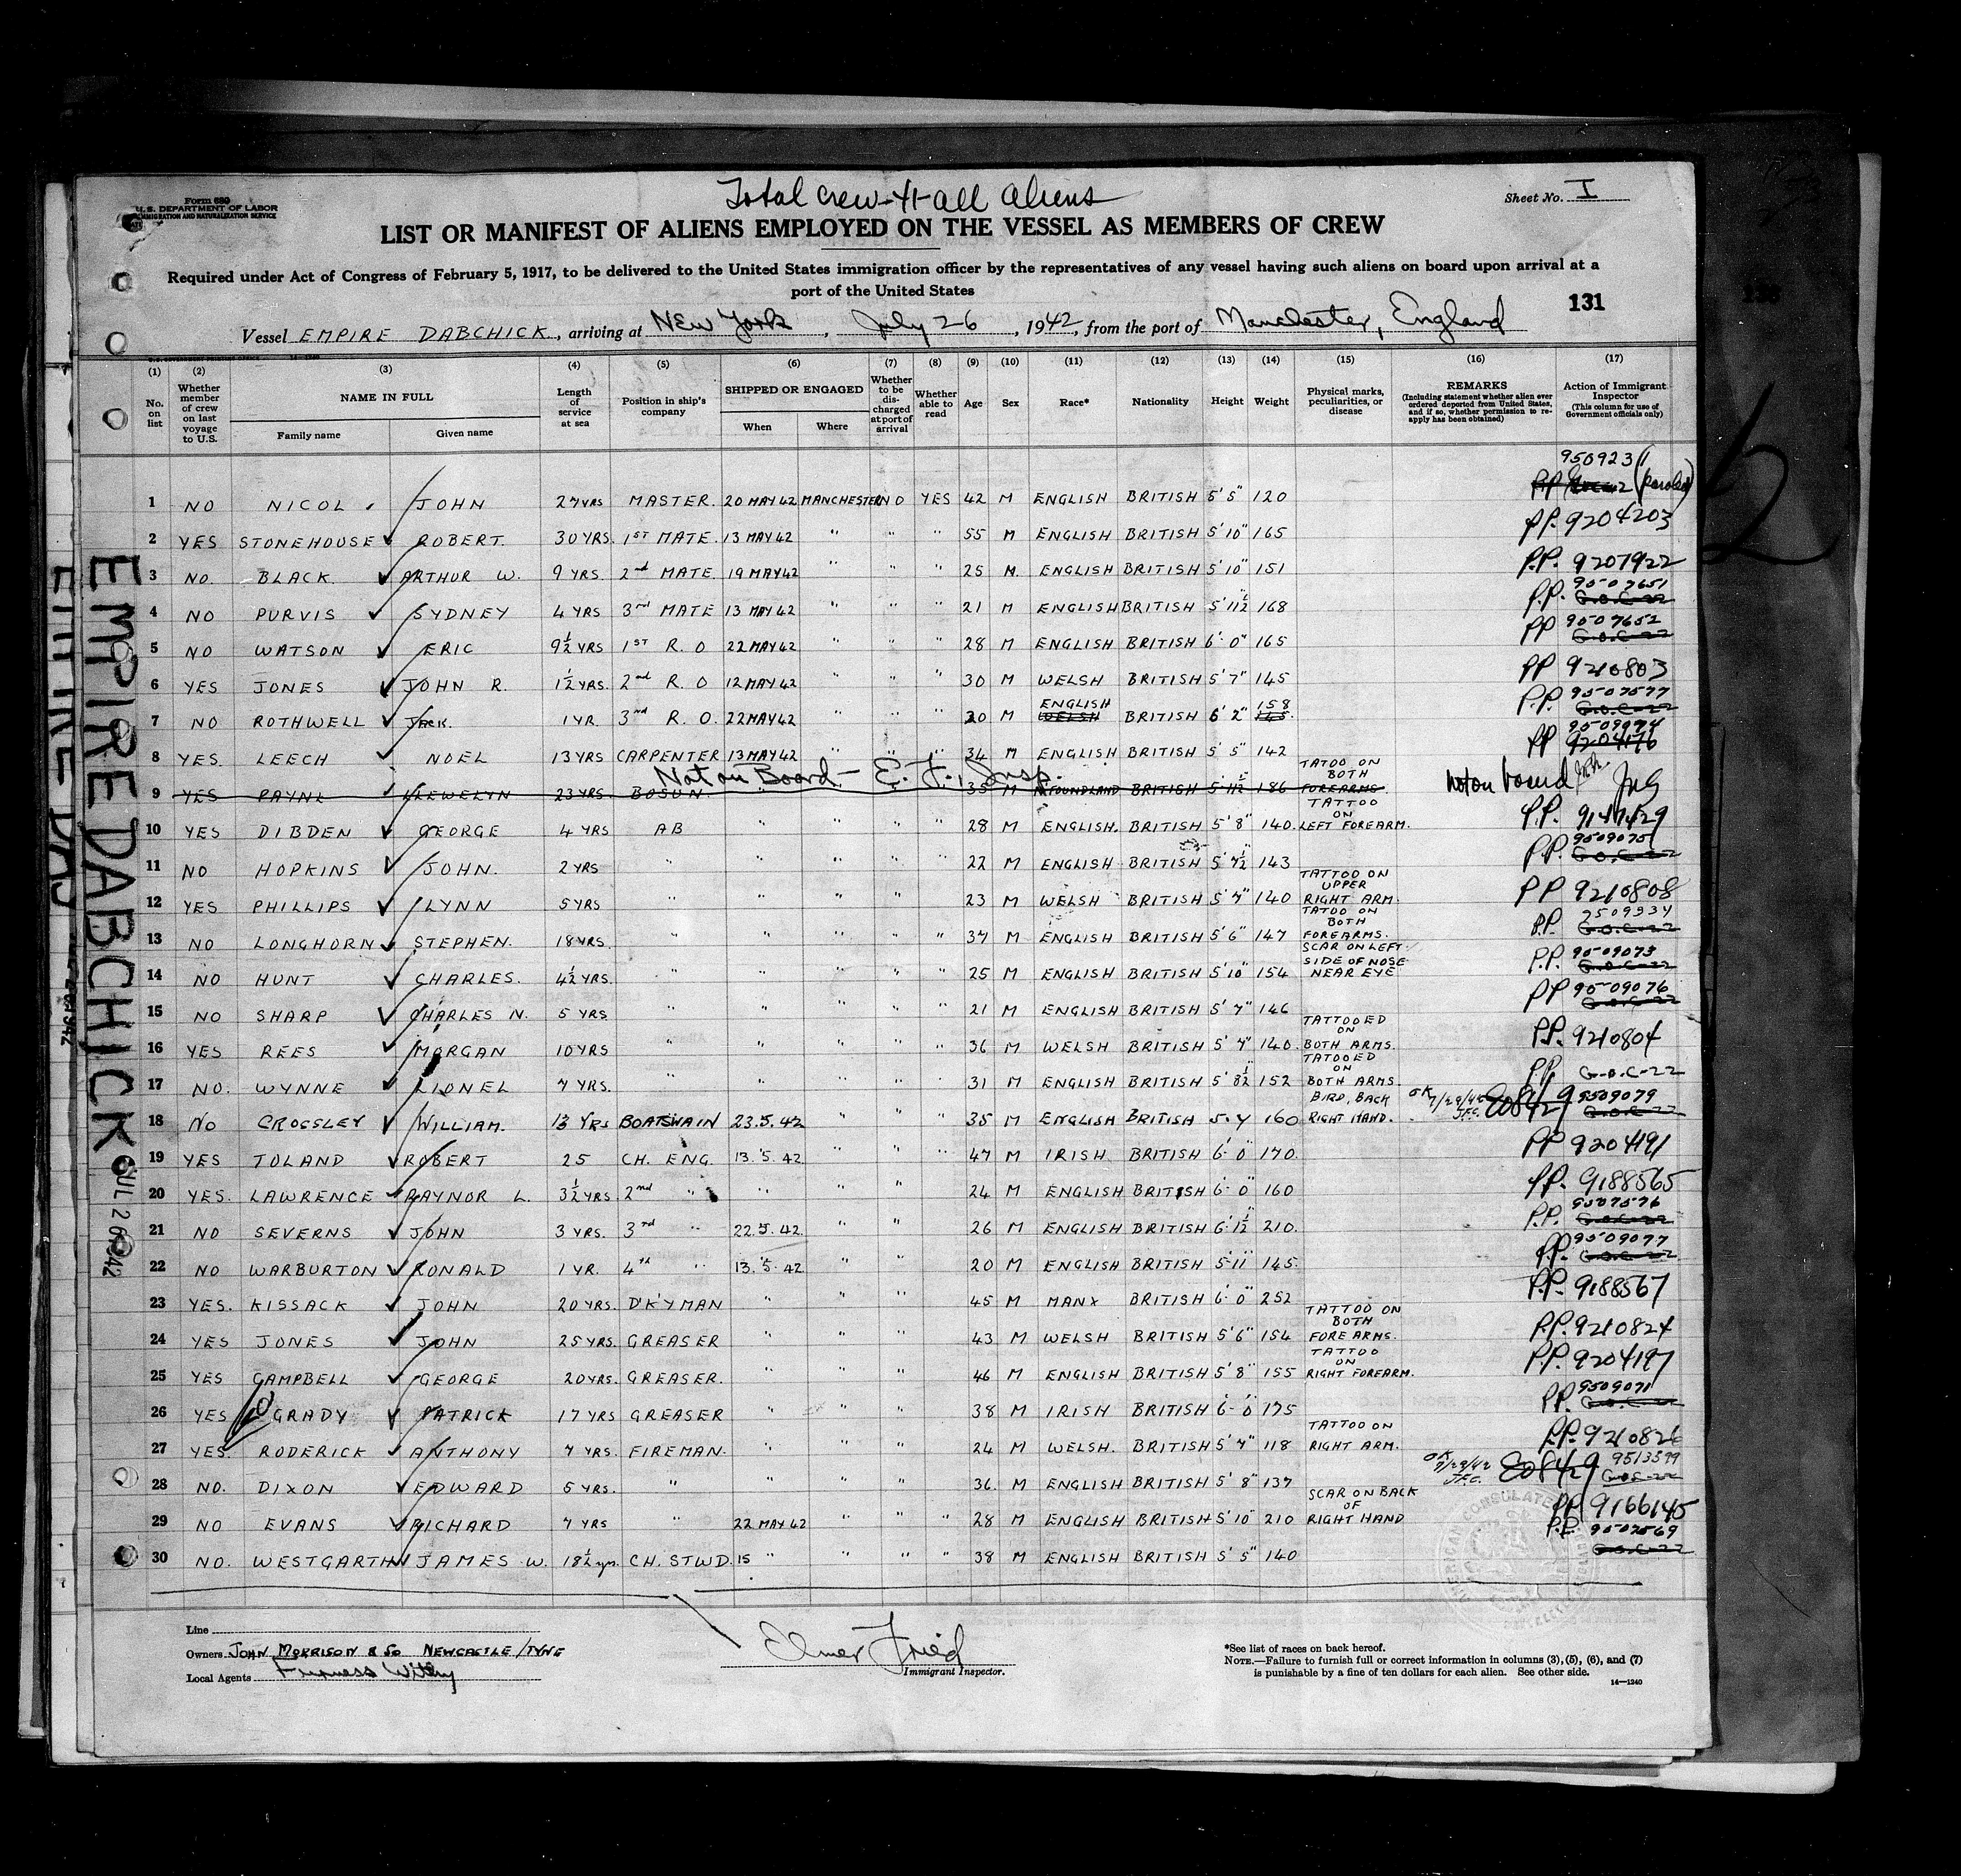 Total crew-41-all aliens
Form 680
U. S. DEPARTMENT OF LABOR
IMMIGRATION AND NATURALIZATION SERVICE
Sheet No. I
LIST OR MANIFEST OF ALIENS EMPLOYED ON THE VESSEL AS MEMBERS OF CREW
Required under Act of Congress of February 5, 1917, to be delivered to the United States immigration officer by the representatives of any vessel having such aliens on board upon arrival at a
port of the United States
131
Vessel EMPIRE DABCHICK, arriving at New York, July 26, 1942, from the port of Manchester, England
(1) No. on list (2) Whether member of crew on last voyage to U.S. (3) NAME IN FULL Family name Given name (4) Length of service at sea (5) Position in ship's company (6) SHIPPED OR ENGAGED When Where (7) Whether to be discharged at port of arrival (8) Whether able to read (9) Age (10) Sex (11) Race* (12) Nationality (13) Height (14) Weight (15) Physical marks, peculiarities, or disease (16) REMARKS (Including statement whether alien ever ordered deported from United States, and if so, whether permission to reapply has been obtained) (17) Action of Immigrant Inspector (This column for use of Government officials only)
1 NO NICOL JOHN 27 YRS MASTER. 20 MAY 42 MANCHESTER NO YES 42 M ENGLISH BRITISH 5' 5" 120 (paroled)
2 YES STONEHOUSE ROBERT 30 YRS. 1ST MATE. 13 MAY 42 " " " 55 M ENGLISH BRITISH 5' 10" 165 PP. 9204203
3 NO. BLACK ARTHUR W. 9 YRS. 2nd MATE 19 MAY 42 " " " 25 M. ENGLISH BRITISH 5' 10" 151 P.P. 9207922
4 NO PURVIS SYDNEY 4 YRS 3rd MATE 13 MAY 42 " " " 21 M ENGLISH BRITISH 5' 11½" 168 P.P. 9507651 G.O.C-22
5 NO WATSON ERIC 9½ YRS 1ST R. O 22 MAY 42 " " " 28 M ENGLISH BRITISH 6' 0" 165 PP 9507652 G.O.C-22
6 YES JONES JOHN R. 1½ YRS. 2nd R. O 12 MAY 42 " " " 30 M WELSH BRITISH 5' 7" 145 PP 9210803
7 NO ROTHWELL JACK. 1 YR. 3rd R. O. 22 MAY 42 " " " 20 M ENGLISH WELSH BRITISH 6' 2" 158 145. P.P. 9507577 G.O.C-22
8 YES. LEECH NOEL 13 YRS CARPENTER 13 MAY 42 " " " 34 M ENGLISH BRITISH 5' 5" 142 PP 9509974 9204176
Not on Board - E. F., Insp.
9 YES PAYNE LLEWELYN 23 YRS. BOSUN 35 M N'FOUNDLAND BRITISH 5' 11½" 186 TATOO ON BOTH FOREARMS. not on board
10 YES DIBDEN GEORGE 4 YRS AB " " " " 28 M ENGLISH. BRITISH 5' 8" 140. TATTOO ON LEFT FOREARM. P.P. 9147429
11 NO HOPKINS JOHN. 2 YRS " " " " " 22 M ENGLISH BRITISH 5' 7½" 143 P.P. 9509075 G.O.C-22
12 YES PHILLIPS LYNN 5 YRS " " " " " 23 M WELSH BRITISH 5' 7" 140 TATTOO ON UPPER RIGHT ARM. PP 9210808
13 NO LONGHORN STEPHEN. 18 YRS. " " " " " 37 M ENGLISH BRITISH 5' 6" 147 TATOO ON BOTH FOREARMS. P.P. G.O.C-22
14 NO HUNT CHARLES. 4½ YRS. " " " " " 25 M ENGLISH BRITISH 5' 10" 154 SCAR ON LEFT SIDE OF NOSE NEAR EYE P.P. 9509073 G.O.C-22
15 NO SHARP CHARLES N. 5 YRS " " " " " 21 M ENGLISH BRITISH 5' 7" 146 PP 9509076 G.O.C-22
16 YES REES MORGAN 10 YRS " " " " " 36 M WELSH BRITISH 5' 7" 140. TATTOOED ON BOTH ARMS. P.P. 9210804
17 NO. WYNNE LIONEL 7 YRS. " " " " " 31 M ENGLISH BRITISH 5' 8½" 152 TATOOED ON BOTH ARMS. P.P. G.O.C-22
18 NO CROSSLEY WILLIAM. 13 YRS BOATSWAIN 23.5.42 " " " 35 M ENGLISH BRITISH 5.7 160 BIRD, BACK RIGHT HAND. OK 7/29/42 J.F.C. 9509079 G.O.C-22
19 YES TOLAND ROBERT 25 CH. ENG. 13.5.42 " " " 47 M IRISH. BRITISH 6' 0" 170. PP 9204191
20 YES. LAWRENCE RAYNOR L. 3½ YRS. 2nd " " " " 24 M ENGLISH BRITISH 6' 0" 160 PP. 9188565
21 NO SEVERNS JOHN 3 YRS. 3rd " 22.5.42. " " 26 M ENGLISH BRITISH 6' 1½" 210. P.P. 9507576 G.O.C-22
22 NO WARBURTON RONALD 1 YR. 4th " 13.5.42 " " 20 M ENGLISH BRITISH 5' 11" 145. PP. 9509077 G.O.C-22
23 YES. KISSACK JOHN 20 YRS. D'K'YMAN " " " 45 M MANX BRITISH 6' 0" 252 P.P. 9188567
24 YES JONES JOHN 25 YRS. GREASER " " " 43 M WELSH BRITISH 5' 6" 154 TATTOO ON BOTH FOREARMS. P.P. 9210824
25 YES CAMPBELL GEORGE 20 YRS. GREASER. " " " 46 M ENGLISH BRITISH 5' 8" 155 TATTOO ON RIGHT FOREARM. P.P. 9204197
26 YES O'GRADY PATRICK 17 YRS GREASER " " " 38 M IRISH BRITISH 6' 0" 175 P.P. 9509071 G.O.C-22
27 YES. RODERICK ANTHONY 7 YRS. FIREMAN. " " " 24 M WELSH. BRITISH 5' 7" 118 TATTOO ON RIGHT ARM. P.P. 9210826
28 NO. DIXON EDWARD 5 YRS. " " " " 36. M ENGLISH BRITISH 5' 8" 137 OK 7/29/42 J.F.C. 9513599 G.O.C-22
29 NO EVANS RICHARD 7 YRS " 22 MAY 42 " " " 28 M ENGLISH BRITISH 5' 10" 210 SCAR ON BACK OF RIGHT HAND PP. 9166145
30 NO. WESTGARTH JAMES W. 18½ yrs. CH. STWD. 15 " " " " 38 M ENGLISH BRITISH 5' 5" 140 P.P. 9507569 G.O.C-22
AMERICAN CONSULATE
Line
Owners JOHN MORRISON & SO NEWCASTLE/TYNE
Local Agents Furness Withy
Elmer Fried
Immigrant Inspector.
*See list of races on back hereof.
NOTE.—Failure to furnish full or correct information in columns (3), (5), (6), and (7)
is punishable by a fine of ten dollars for each alien. See other side.
14—1240
EMPIRE DABCHICK
JUL 26 1942